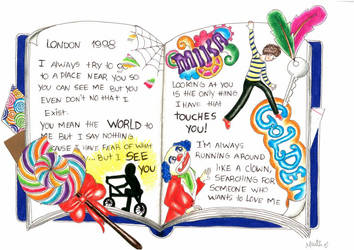 LONDON 1998
I ALWAYS TRY TO GO
TO A PLACE NEAR YOU SO
YOU CAN SEE ME BUT YOU
EVEN DON'T NO THAT I
EXIST.
YOU MEAN THE WORLD TO
ME BUT I SAY NOTHING
CAUSE I HAVE FEAR OF WHAT
...BUT I SEE
YOU
MIKA
LOOKING AT YOU
IS THE ONLY THING
I HAVE THAT
TOUCHES
YOU!
I'M ALWAYS
RUNNING AROUND
LIKE A CLOWN,
SEARCHING FOR
SOMEONE WHO
WANTS TO LOVE ME
GOLDEN